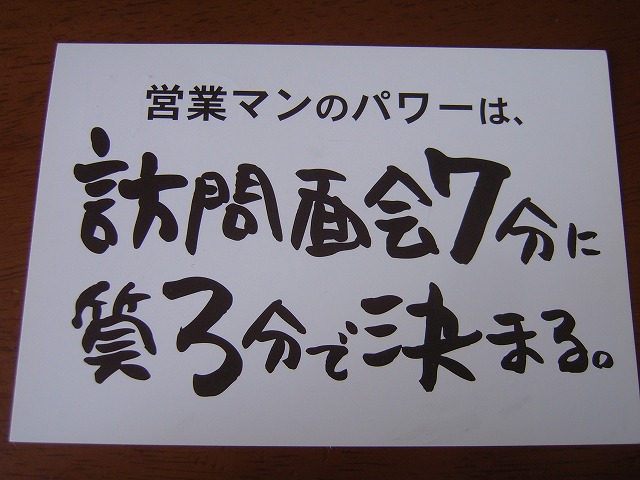 営業マンのパワーは、
訪問面会7分に
質3分で決まる。